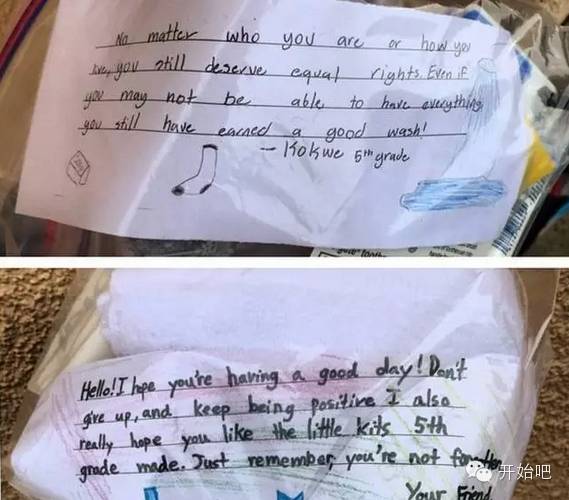 No matter who you are or how you
live, you still deserve equal rights. Even if
you may not be able to have everything
you still have earned a good wash!
- Kokwe 5th grade
Hello! I hope you're having a good day! Don't
give up, and keep being positive I also
really hope you like the little kits 5th
grade made. Just remember, you're not forgotten
Your Friend
开始吧